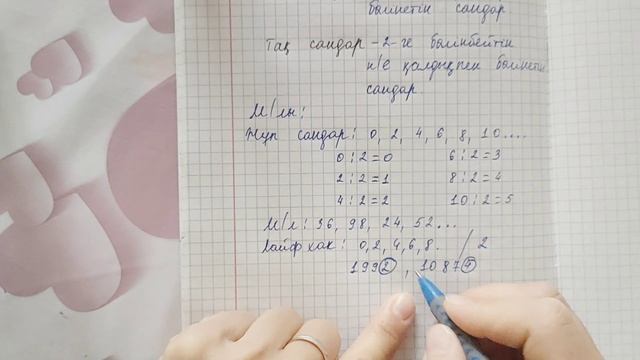 бөлінетін сандар
Тақ сандар - 2-ге бөлінбейтін
н/е қалдықпен бөлінетін
сандар.
М/лы:
Жұп сандар: 0, 2, 4, 6, 8, 10....
0 : 2 = 0 6 : 2 = 3
2 : 2 = 1 8 : 2 = 4
4 : 2 = 2 10 : 2 = 5
М/л: 36, 98, 24, 52...
Лайфхак: 0, 2, 4, 6, 8. / 2
1992, 10874